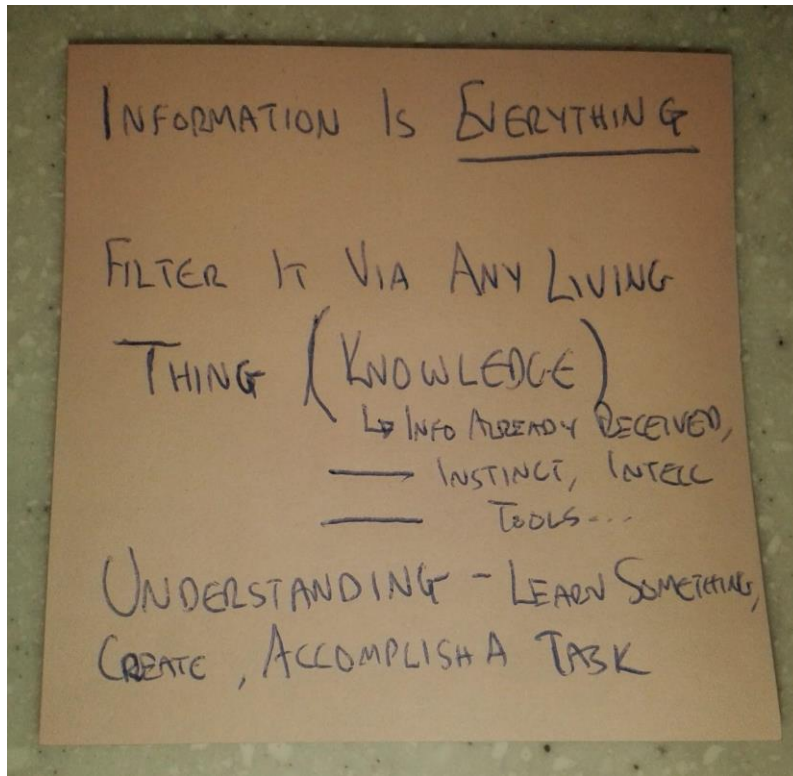 INFORMATION IS EVERYTHING
FILTER IT VIA ANY LIVING
THING (KNOWLEDGE)
↳ INFO ALREADY RECEIVED,
— INSTINCT, INTELL
— TOOLS...
UNDERSTANDING - LEARN SOMETHING,
CREATE, ACCOMPLISH A TASK